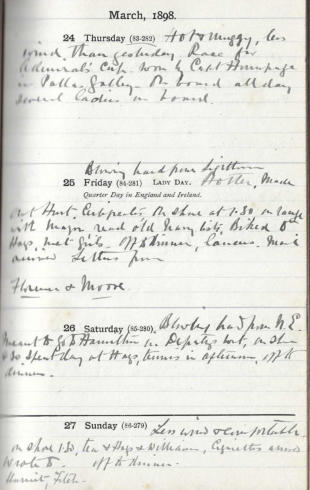 March, 1898.
24 Thursday (83-282) Hot & Muggy, less
wind than yesterday. Race for
Admiral's Cup won by Capt
in Pallas Galley. On board all day
several Ladies on board.
Blowing hard from
25 Friday (84-281) LADY DAY. Hotter, Made
Quarter Day in England and Ireland.
out Hurt. on shore at 1.30
with Major read old Navy lists. Biked to
Hags, met girls. off to dinner, Mail
arrived Letters from
Florence & Moore.
26 Saturday (85-280). Blowing hard from N.E.
Meant to go to Hamilton in boat, on shore
spent day at Hags, tennis in afternoon, off to
dinner.
27 Sunday (86-279) Less wind & comfortable.
on shore 1.30, tea & Hags & Williams, Cigarettes arrived
wrote to off to dinner.
Harriet,